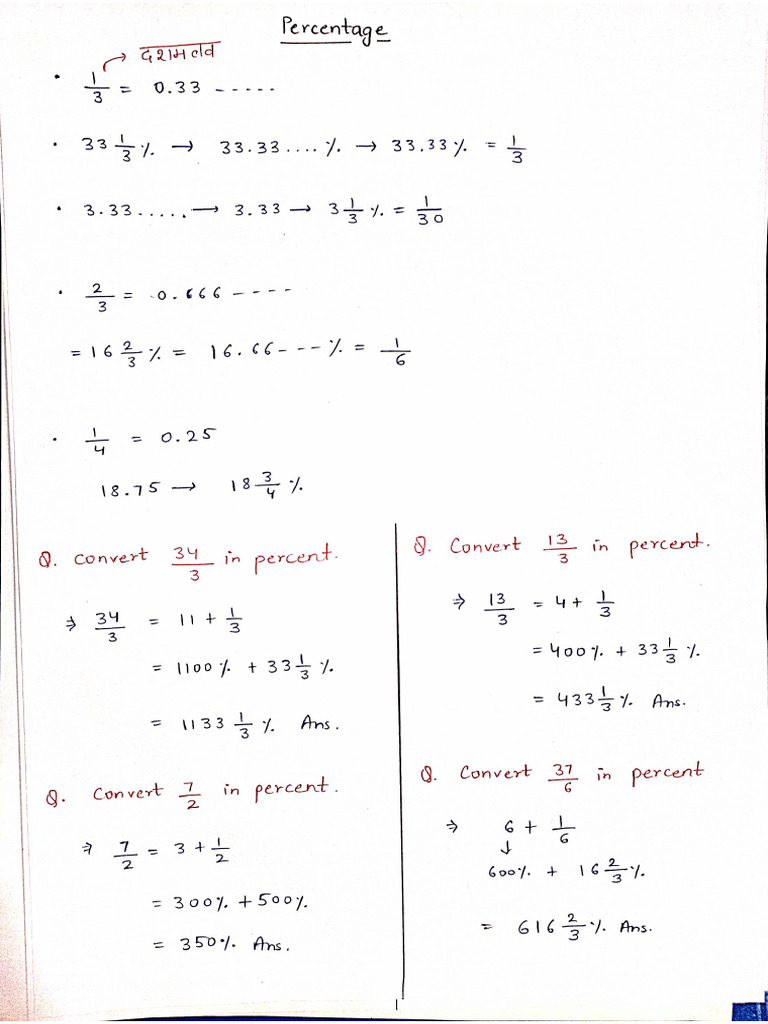 Percentage
→ दशमलव
• 1/3 = 0.33 -----
• 33 1/3 % → 33.33.... % → 33.33 % = 1/3
• 3.33..... → 3.33 → 3 1/3 % = 1/30
• 2/3 = 0.666 ----
= 16 2/3 % = 16.66--- % = 1/6
• 1/4 = 0.25
18.75 → 18 3/4 %
Q. Convert 34/3 in percent.
⇒ 34/3 = 11 + 1/3
= 1100 % + 33 1/3 %
= 1133 1/3 % Ans.
Q. Convert 7/2 in percent.
⇒ 7/2 = 3 + 1/2
= 300 % + 500 %
= 350 % Ans.
Q. Convert 13/3 in percent.
⇒ 13/3 = 4 + 1/3
= 400 % + 33 1/3 %
= 433 1/3 % Ans.
Q. Convert 37/6 in percent
⇒ 6 + 1/6
↓
600 % + 16 2/3 %
= 616 2/3 % Ans.